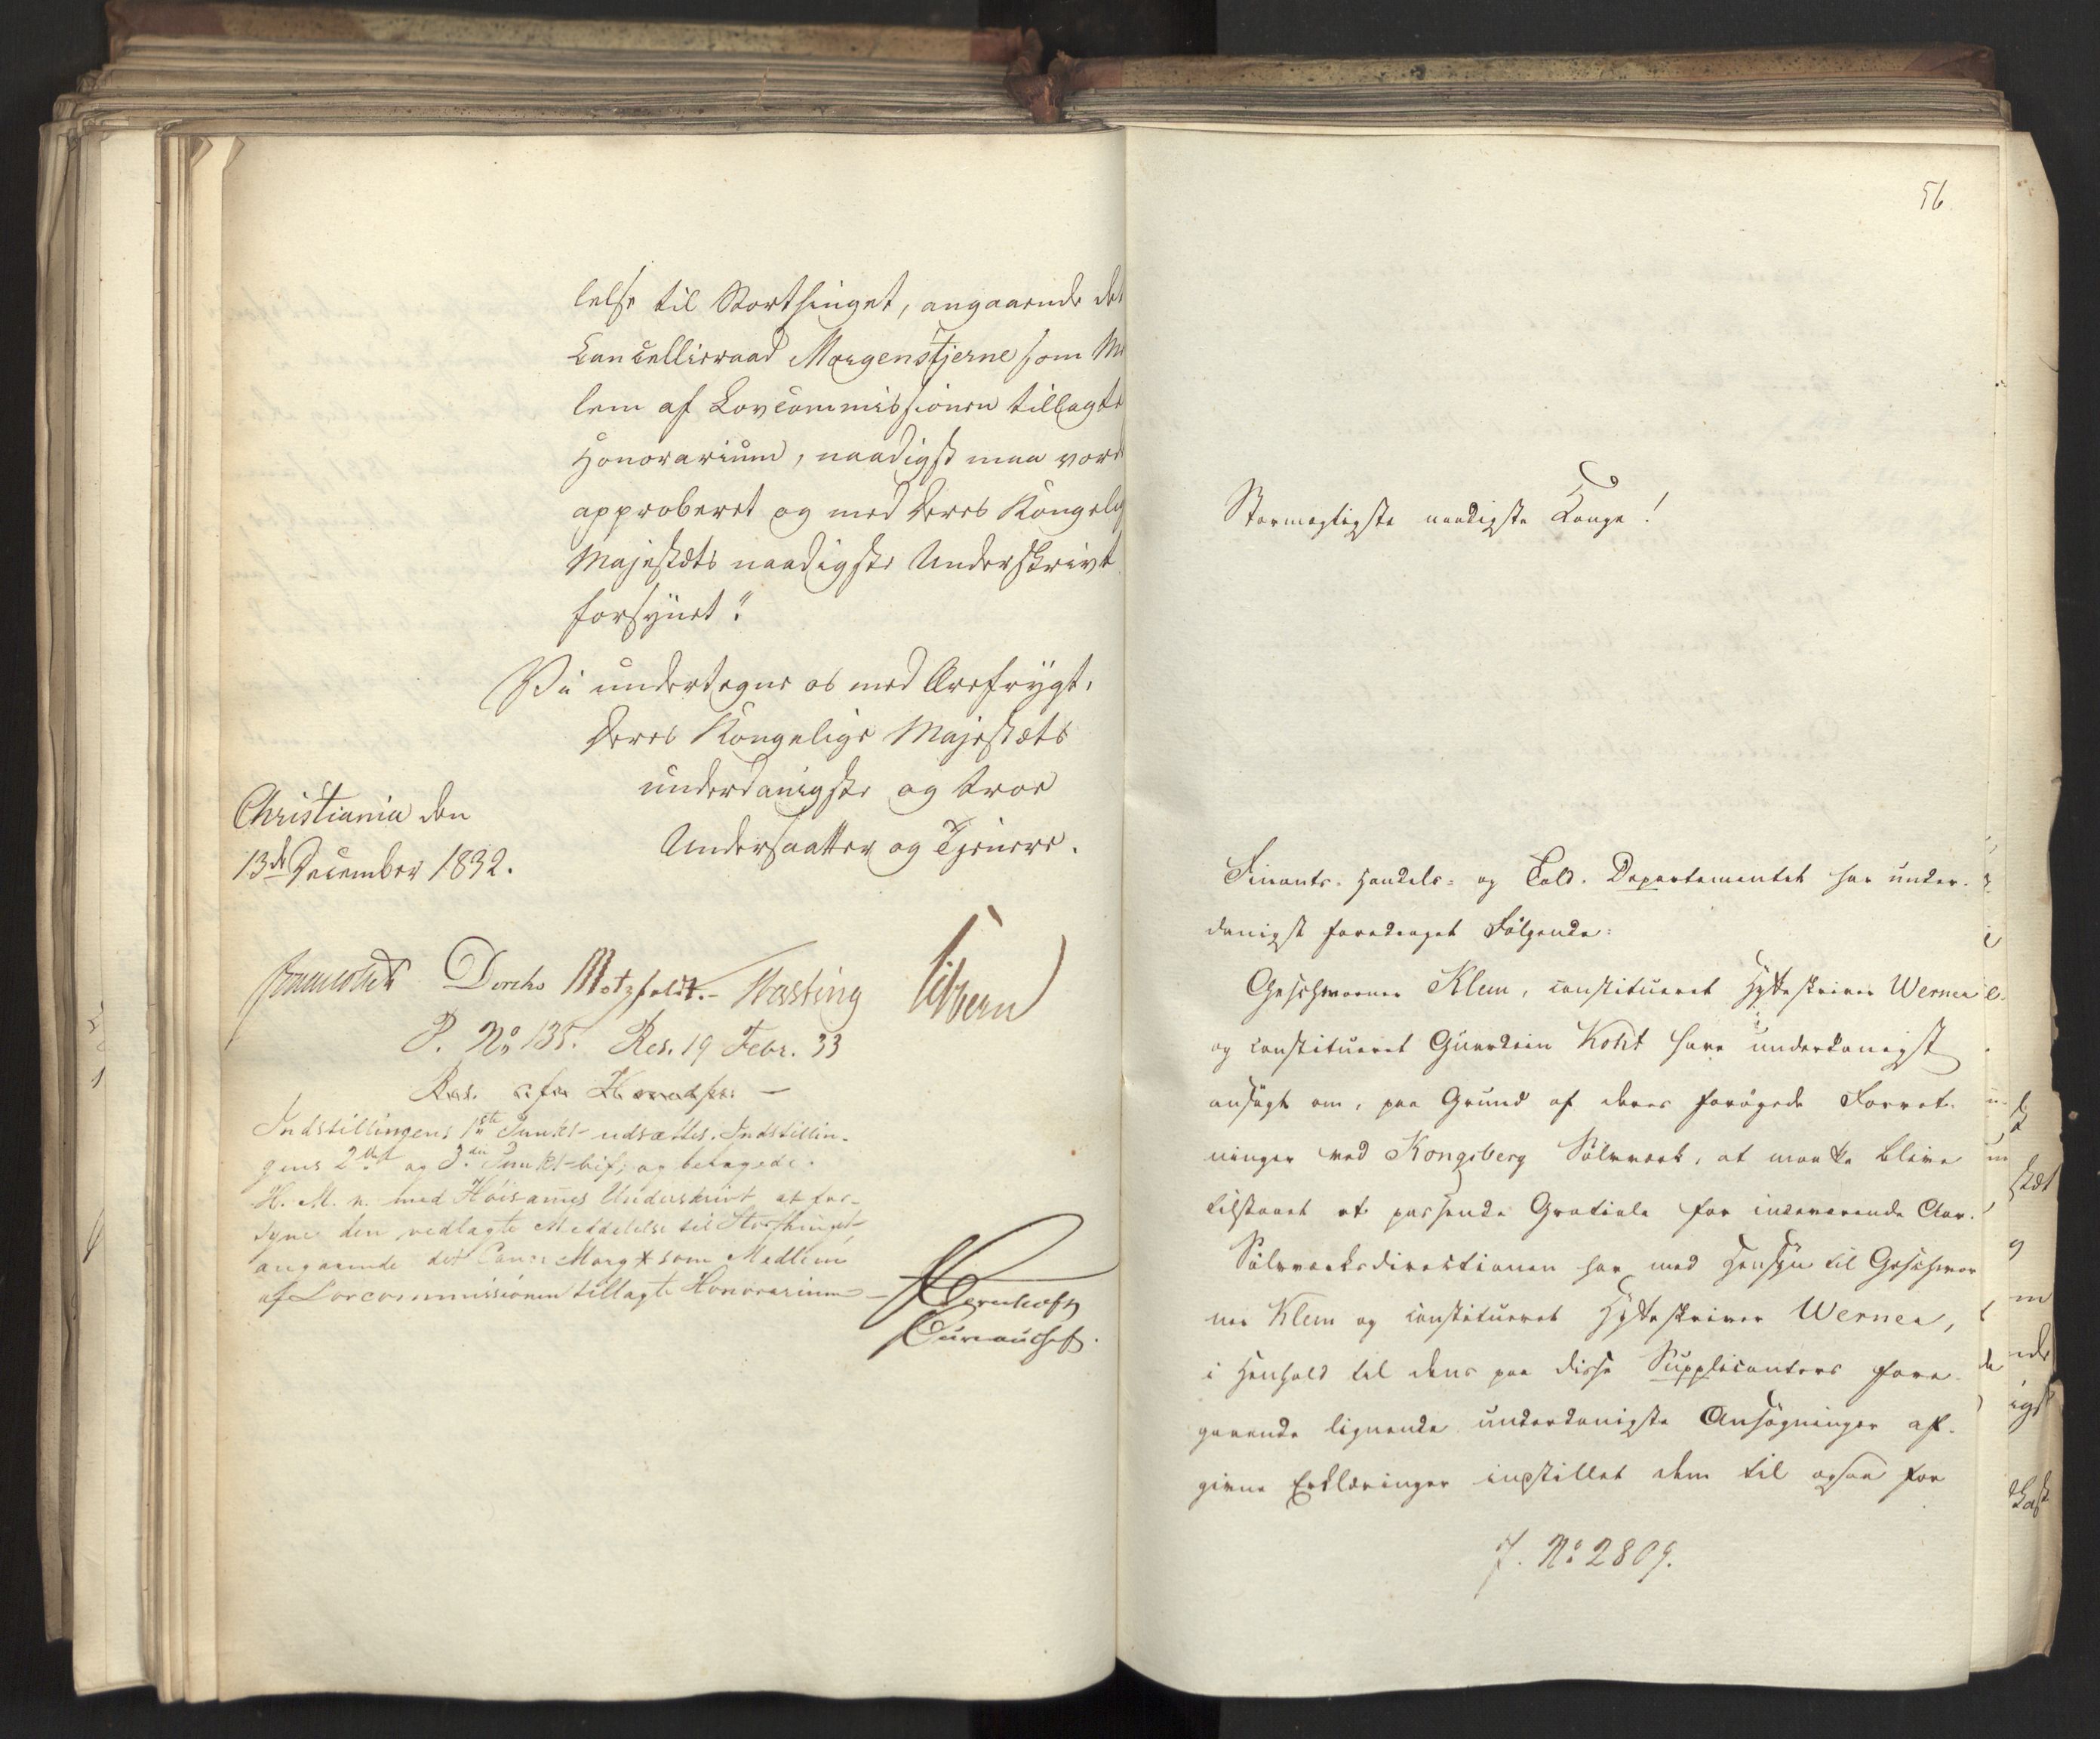 lelse til Storthinget, angaaende det
Cancelliraad Morgenstjerne som Me
lem af Lovcommissionen tillagte
Honorarium, naadigst maa vorde
approberet og med Deres Kongelig
Majestæts naadigste Underskrivt
forsynet".
Vi undertegne os med Ærefrygt,
Deres Kongelige Majestæts
underdanigste og troe
Undersaatter og Tjenere.
Christiania den
13de December 1832.
Diriks Motzfeldt. Fasting Sibbern
P. No 135. Res. 19 Febr. 33
Indstillingens 1ste Punkt udsættes. Indstillin-
gens 2det og 3die Punkt bif. og behagede
H. M. n. med Høisammes Underskrivt at for-
syne den vedlagte Meddelelse til Storthinget
angaaende det Canc. Morgst som Medlem
af Lovcommissionen tillagte Honorarium
Bureauchef.
56
Stormægtigste naadigste Konge!
Finants- Handels- og Told-Departementet har under-
danigst foredraget Følgende:
Geschworner Klem, constitueret Hytteskriver Werner
og constitueret Guardein Koht have underdanigst
ansøgt om, paa Grund af deres forøgede Forret-
ninger ved Kongsberg Sølvverk, at maatte blive
tilstaaet et passende Gratiale for indeværende Aar.
Sølvverksdirectionen har med Hensyn til Geschwor
ner Klem og constitueret Hytteskriver Werner,
i Henhold til dens paa disse Supplicanters fore-
gaaende lignende underdanigste Ansøgninger af-
givne Erklæringer indstillet dem til ogsaa for
J. No 2809.